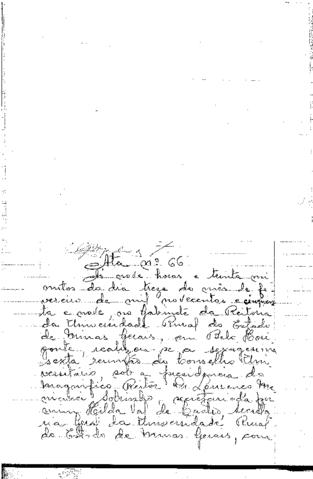 Ata nº 66
Às nove horas e trinta mi
nutos do dia treze do mês de fe
vereiro de mil novecentos e cinquen
ta e nove, no Gabinete da Reitoria
da Universidade Rural do Estado
de Minas Gerais, em Belo Hori
zonte, realizou-se a sexagésima
sexta reunião do Conselho Uni
versitário, sob a presidência do
Magnífico Reitor, Dr. Lourenço Me
nicucci Sobrinho, secretariada por
mim Hilda Val de Castro, secretá
ria Geral da Universidade Rural
do Estado de Minas Gerais, com